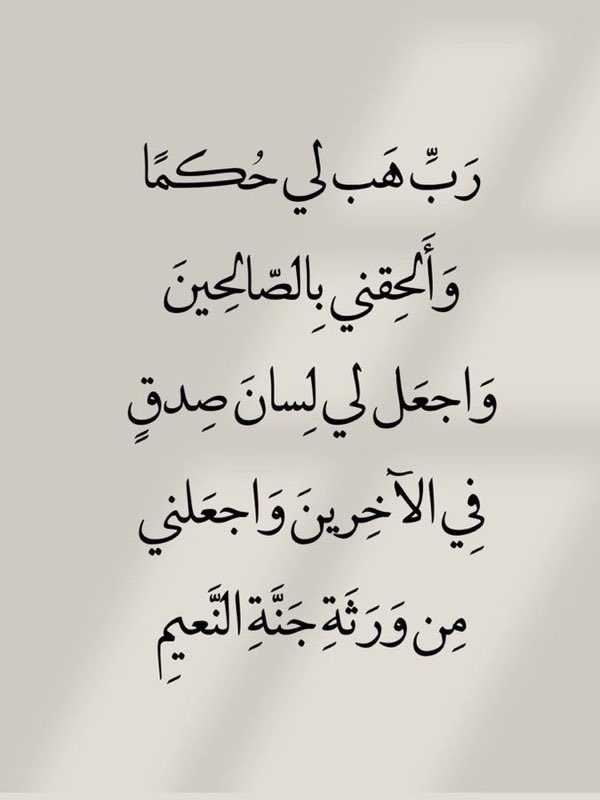 رَبِّ هَب لي حُكمًا
وَأَلحِقني بِالصّالِحينَ
وَاجعَل لي لِسانَ صِدقٍ
فِي الآخِرينَ وَاجعَلني
مِن وَرَثَةِ جَنَّةِ النَّعيمِ